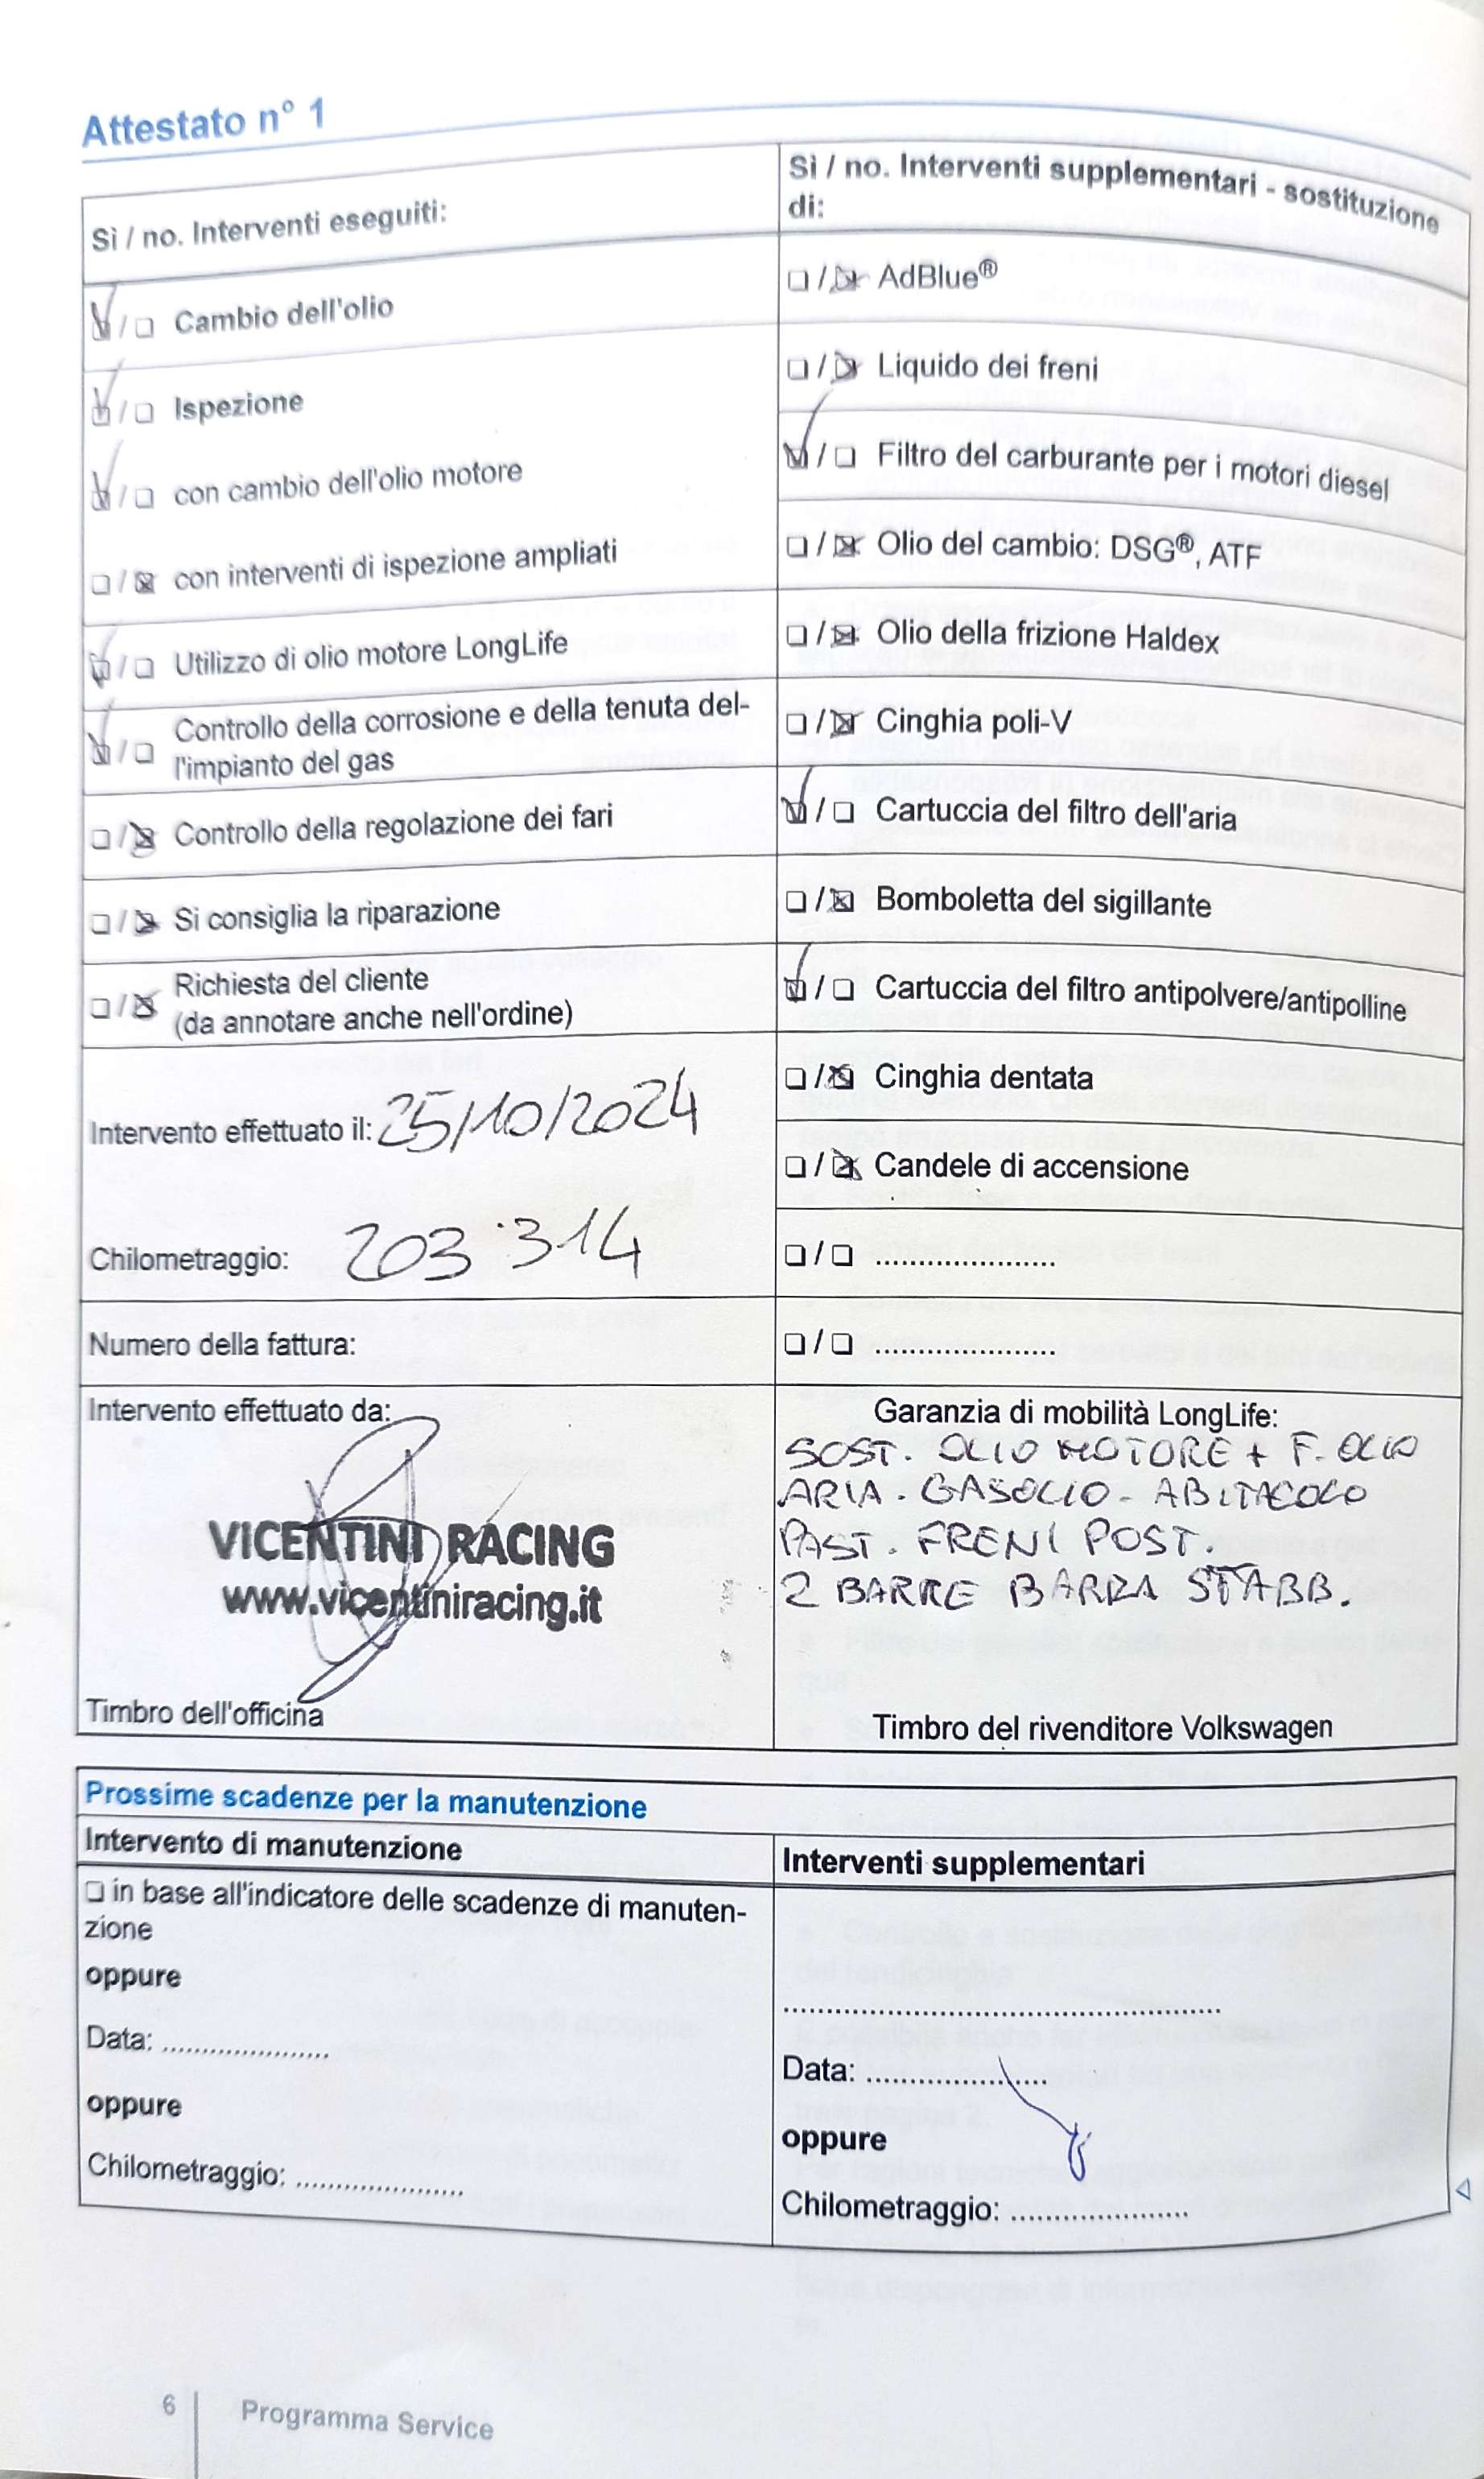 Attestato n° 1
Sì / no. Interventi eseguiti:
☑ / ☐ Cambio dell'olio
☑ / ☐ Ispezione
☑ / ☐ con cambio dell'olio motore
☐ / ☒ con interventi di ispezione ampliati
☑ / ☐ Utilizzo di olio motore LongLife
☑ / ☐ Controllo della corrosione e della tenuta del-
l'impianto del gas
☐ / ☒ Controllo della regolazione dei fari
☐ / ☒ Si consiglia la riparazione
☐ / ☒ Richiesta del cliente
(da annotare anche nell'ordine)
Intervento effettuato il: 25/10/2024
Chilometraggio: 203.314
Numero della fattura:
Intervento effettuato da:
VICENTINI RACING
www.vicentiniracing.it
Timbro dell'officina
Sì / no. Interventi supplementari - sostituzione
di:
☐ / ☒ AdBlue®
☐ / ☒ Liquido dei freni
☑ / ☐ Filtro del carburante per i motori diesel
☐ / ☒ Olio del cambio: DSG®, ATF
☐ / ☒ Olio della frizione Haldex
☐ / ☒ Cinghia poli-V
☑ / ☐ Cartuccia del filtro dell'aria
☐ / ☒ Bomboletta del sigillante
☑ / ☐ Cartuccia del filtro antipolvere/antipolline
☐ / ☒ Cinghia dentata
☐ / ☒ Candele di accensione
☐ / ☐ .....................
☐ / ☐ .....................
Garanzia di mobilità LongLife:
SOST. OLIO MOTORE + F. OLIO
ARIA - GASOLIO - ABITACOLO
PAST. FRENI POST.
2 BARRE BARRA STABB.
Timbro del rivenditore Volkswagen
Prossime scadenze per la manutenzione
Intervento di manutenzione
☐ in base all'indicatore delle scadenze di manuten-
zione
oppure
Data: ....................
oppure
Chilometraggio: ....................
Interventi supplementari
..................................................
Data: .....................
oppure
Chilometraggio: .....................
6 Programma Service